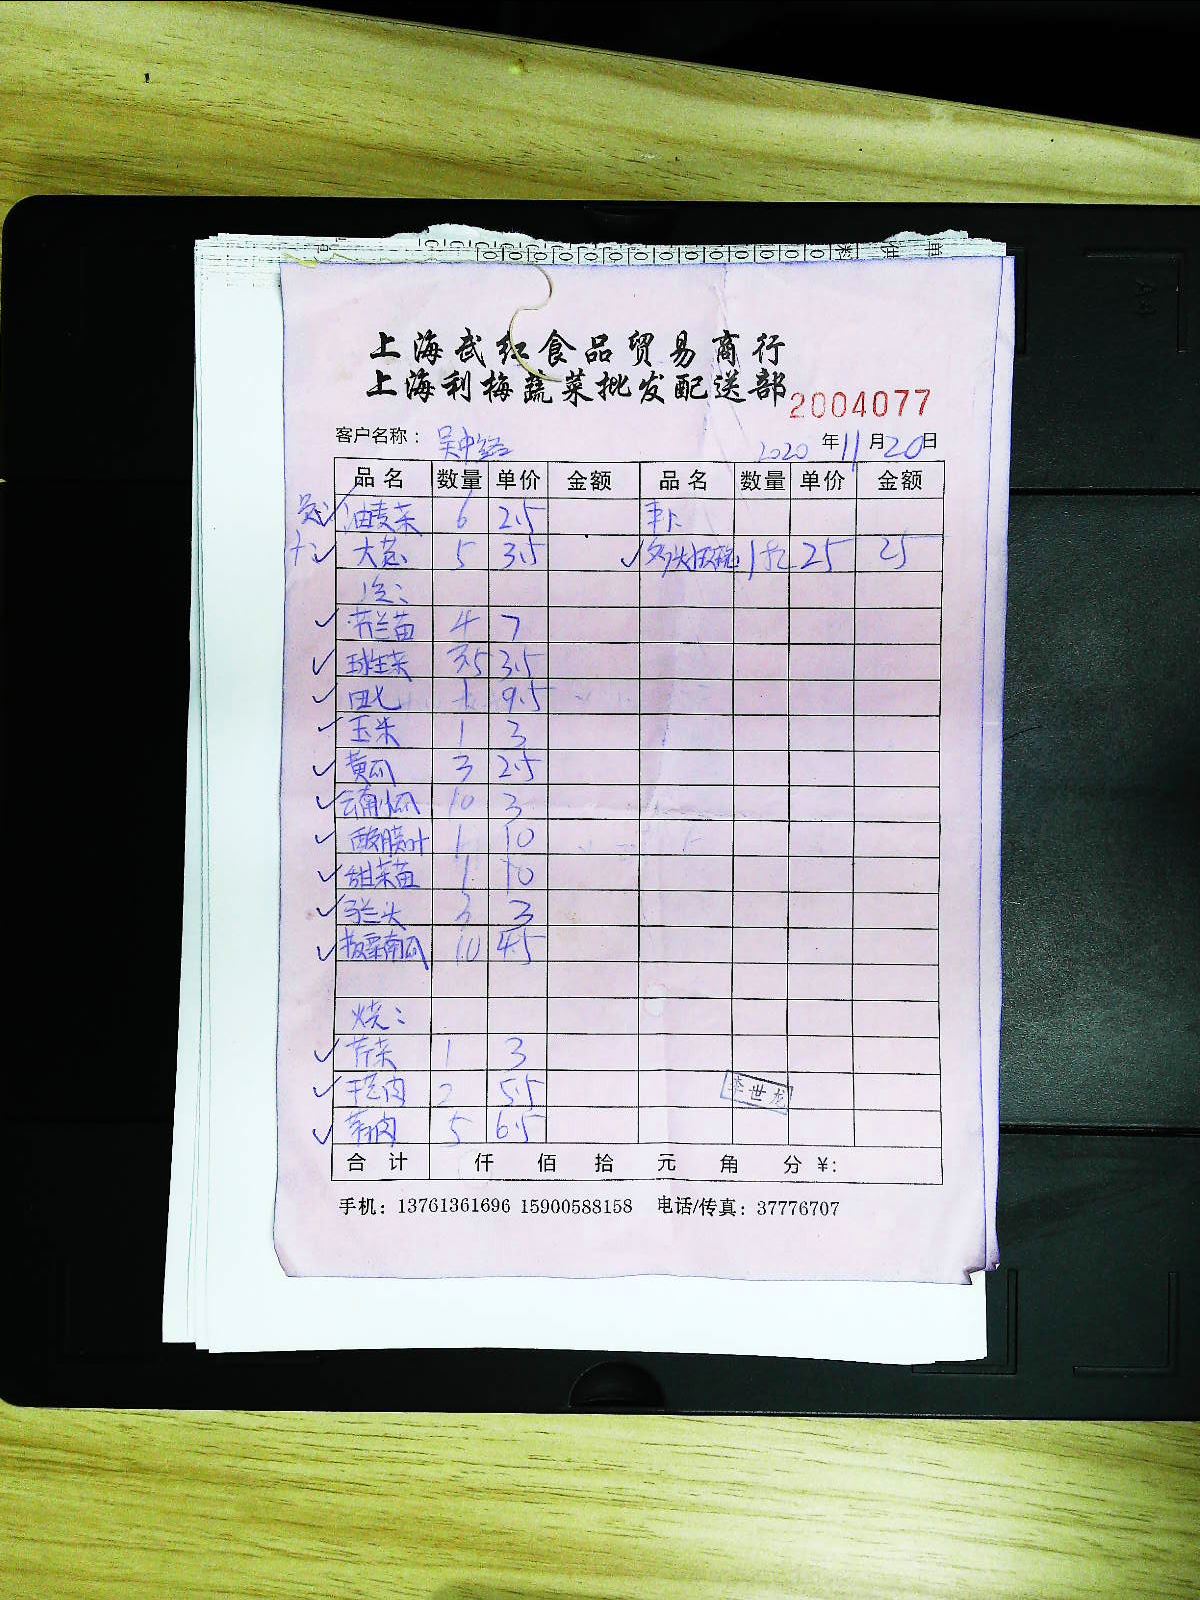 上海武红食品贸易商行
上海利梅蔬菜批发配送部
2004077
客户名称：吴中路 2020年11月20日
品名 数量 单价 金额 品名 数量 单价 金额
油麦菜 6 2.5
大葱 5 3.5 25 25
芥兰苗 4 7
球生菜 3.5
田七 1 9.5
玉米 1 3
黄瓜 3 2.5
云南小瓜 10 3
酸膜叶 1 10
甜菜苗 1 10
马兰头 3 3
板栗南瓜 10 4.5
烧：
芹菜 1 3
干葱肉 2 5.5
芋肉 5 6.5
李世龙
合计 仟 佰 拾 元 角 分 ¥:
手机：13761361696 15900588158 电话/传真：37776707